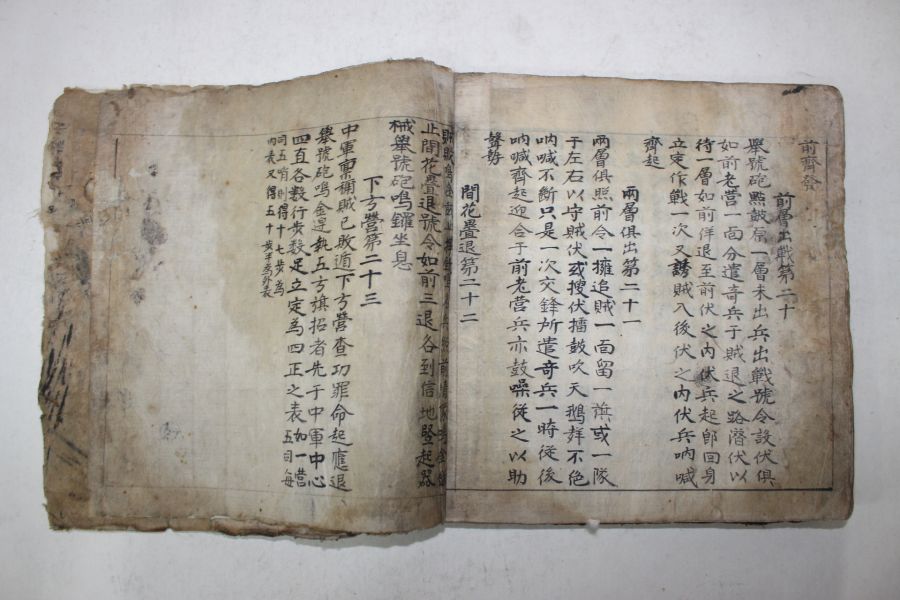 前齊發
前層出戰第二十
舉號砲點鼓存一層未出兵出戰號令設伏俱
如前老營一面分遣奇兵于賊退之路潛伏以
待一層如前佯退至前伏之內伏兵起卽回身
立定作戰一次又誘賊入後伏之內伏兵吶喊
齊起
兩層俱出第二十一
兩層俱照前令一擁追賊一面留一旗或一隊
于左右以守賊伏或搜伏擂鼓吹天鵝聲不絕
吶喊不斷只是一次交鋒所遣奇兵一時從後
吶喊齊起迎合于前老營兵亦鼓噪從之以助
聲勢
間花疊退第二十二
止間花疊退號令如前三退各到信地竪起器
械舉號砲鳴鑼坐息
下方營第二十三
中軍稟稱賊已敗遁下方營查功罪命起應退
舉號砲鳴金邊執五方旗招者先于中軍中心
四直各數行步數足立定為四正之表如一營五司每
司五哨則得十七步為
內表又得五十步半為外表